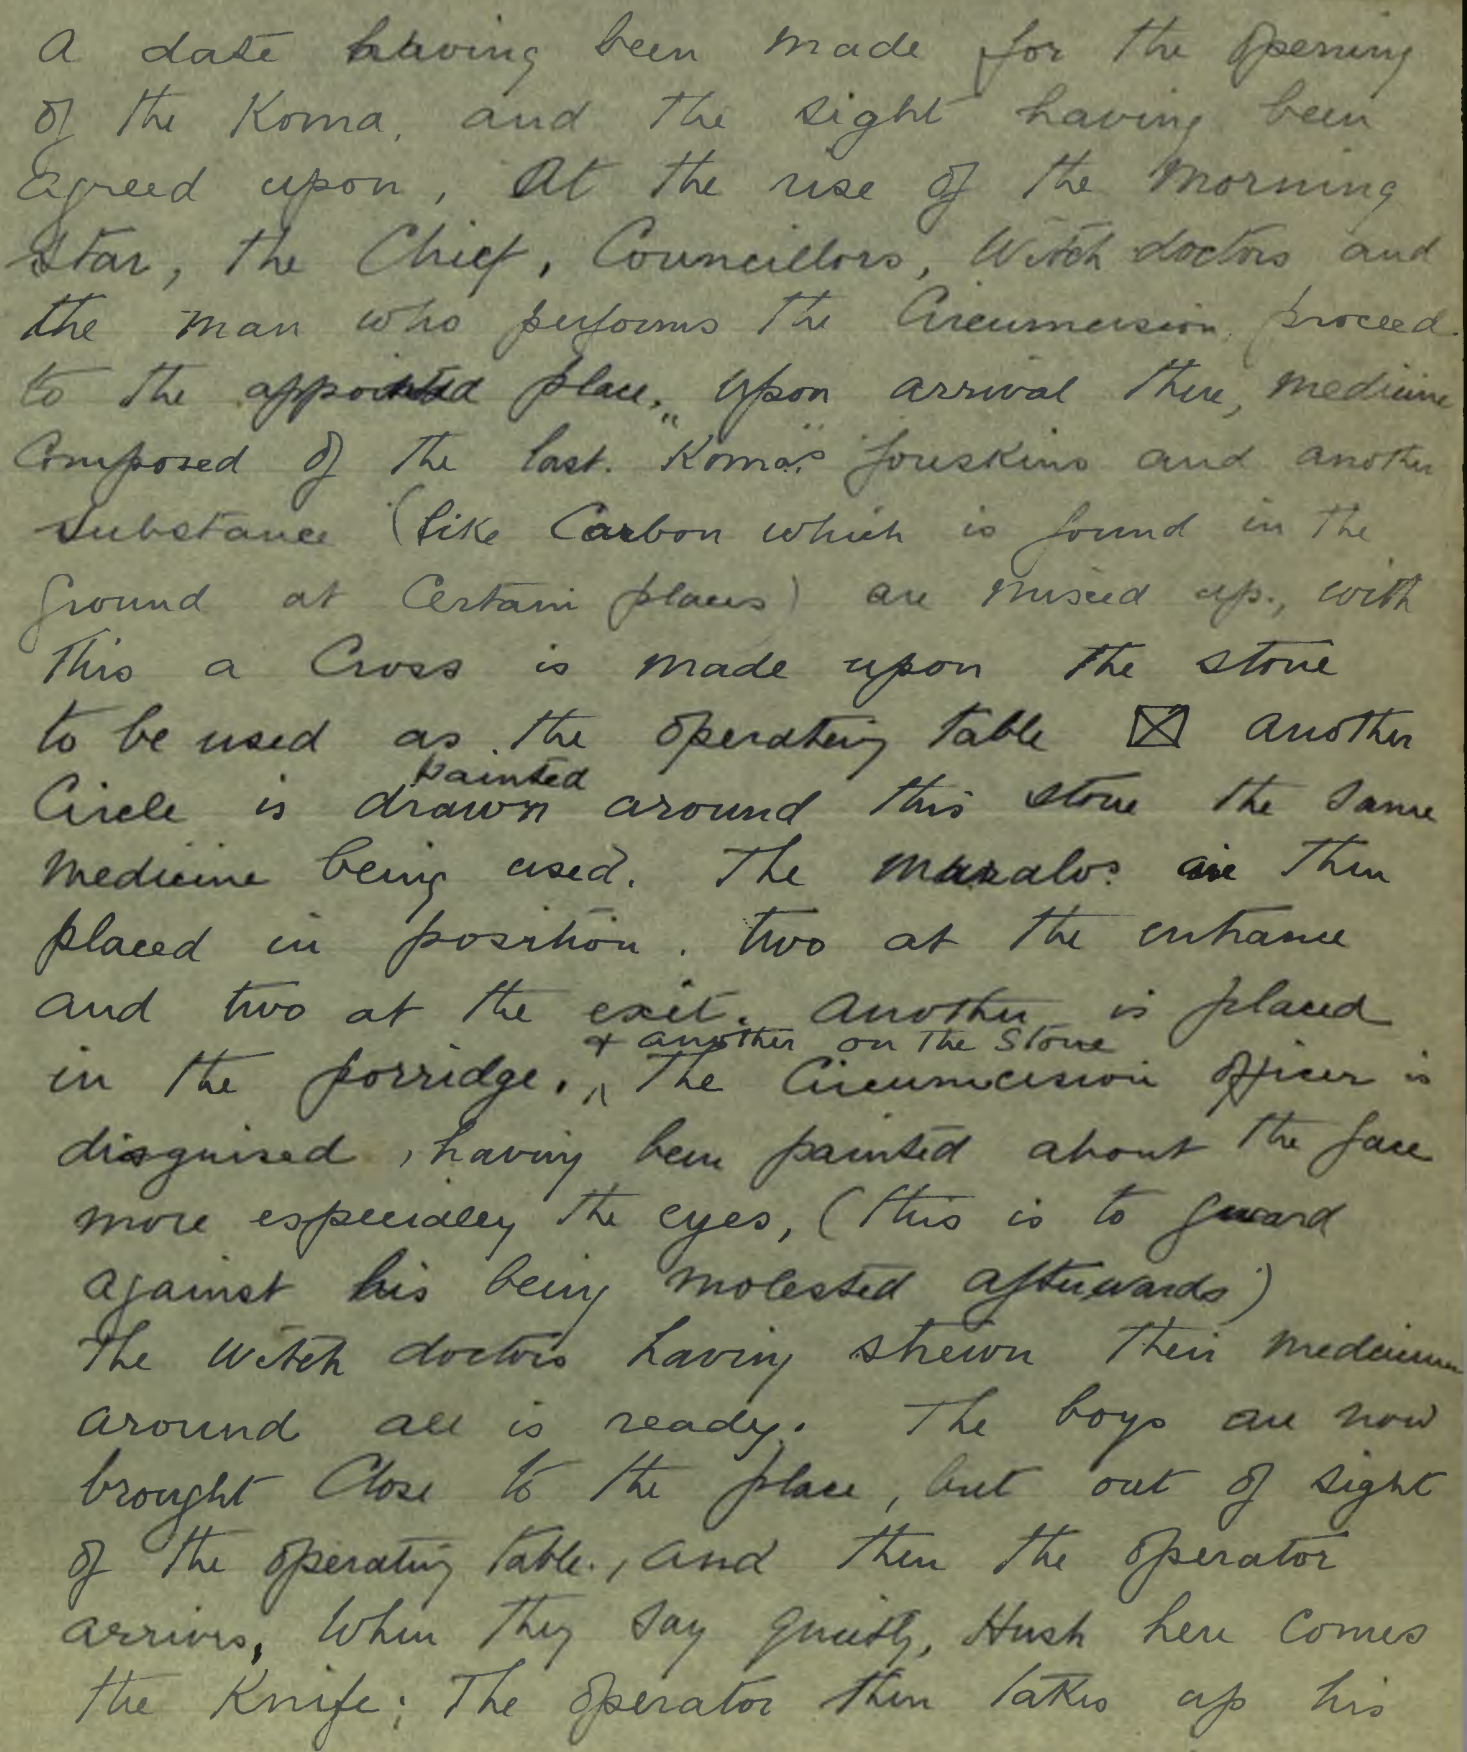 A date having been made for the opening
of the Koma, and the sight having been
agreed upon, At the rise of the morning
star, the Chief, Councillors, Witch doctors and
the man who performs the Circumcision proceed
to the appointed place, upon arrival there, medicine
composed of the last "Koma's" foreskins and another
substance (like Carbon which is found in the
ground at Certain places) are mixed up, with
this a Cross is made upon the stone
to be used as the operating table ☒ another
painted
Circle is drawn around this stone the same
medicine being used. The are then
placed in position. two at the entrance
and two at the exit. another is placed
& another on the stone
in the porridge. ^ The Circumcision officer is
disguised, having been painted about the face
more especially the eyes, (this is to guard
against his being molested afterwards)
The Witch doctors having strewn their medicine
around all is ready. The boys are now
brought Close to the place, but out of sight
of the operating table., and then the operator
arrives, When they say quietly, Hush here comes
the Knife; The operator then takes up his